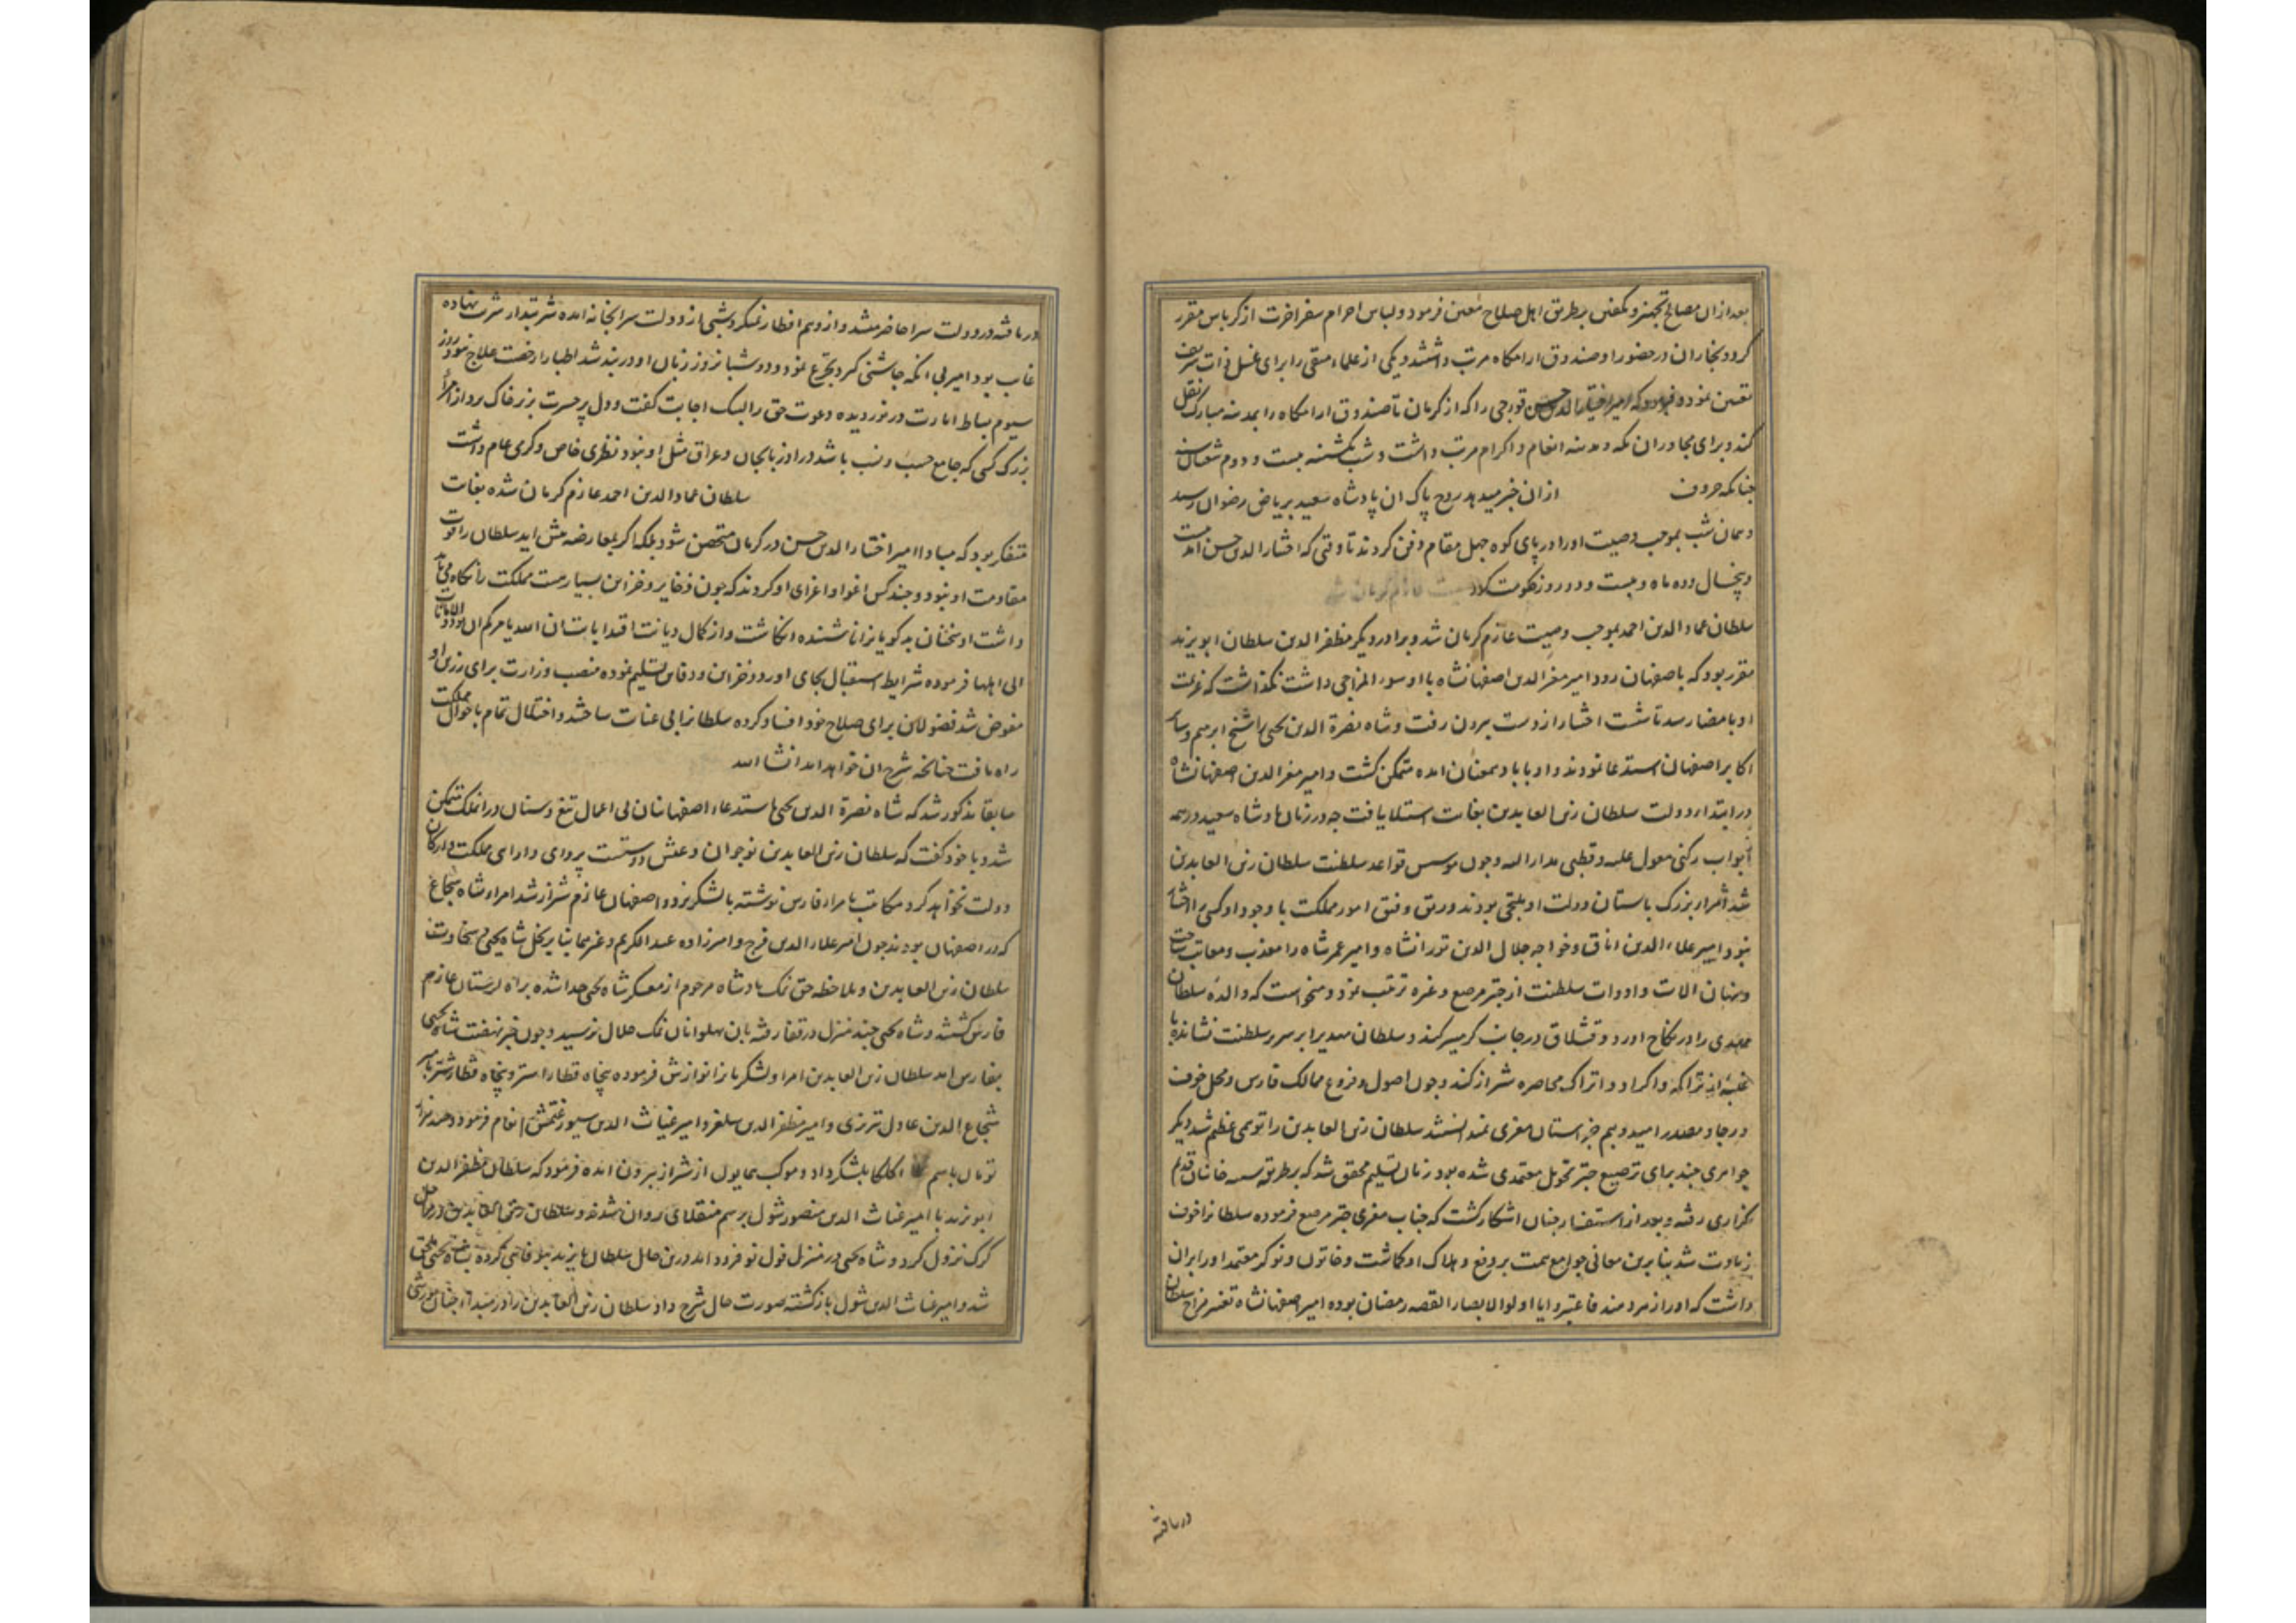 بعد ازان مصالح تجهیز و تکفین بر طریق اهل صلاح معین فرمود و لباس احرام سفر اخرت از کرباس مقرر
کرد و نجاران در حضور او صندوق ارامکاه مرتب داشتند و یکی از علماء متقی را برای غسل ذات شریف
تعیین نموده فرمود که امیر اختیار الدین حسن قورچی را که از کرمان تا صندوق ارامکاه را بمدینه مبارک نقل
کند و برای مجاوران مکه و مدینه انعام و اکرام مرتب داشت و شب یکشنبه بیست و دوم شعبان سنه
چنانکه حروف ازان خبر میدهد روح پاک ان پادشاه سعید بریاض رضوان رسید
و همان شب بموجب وصیت او را در پای کوه چهل مقام دفن کردند تا وقتی که اختیار الدین حسن امد مدت
و پنجسال و ده ماه و بیست و دو روز حکومت کرد
سلطان عماد الدین احمد بموجب وصیت عازم کرمان شد و برادر دیکر مظفر الدین سلطان ابو یزید
مقرر بود که باصفهان رود امیر معز الدین اصفهانشاه با او سوء المزاجی داشت نکذاشت که عزیمت
او بامضا رسد تا شست اختیار از دست بیرون رفت و شاه نصرة الدین یحیی را شیخ ابرهیم و سایر
اکابر اصفهان استدعا نمودند و او با باد همعنان امده متمکن کشت و امیر معز الدین اصفهانشاه
در ابتداء دولت سلطان زین العابدین بغایت استیلا یافت چه در زمان پادشاه سعید در همه
ابواب رکنی معول علیه و قطبی مدار الیه و چون موسس قواعد سلطنت سلطان زین العابدین
شد امراء بزرک باستان دولت او ملتجی بودند و رتق و فتق امور مملکت با وجود او کسی را اختیار
نبود امیر علاء الدین اناق و خواجه جلال الدین تورانشاه و امیر عمر شاه را معذب و معاتب ساخت
و پنهان الات و ادوات سلطنت از چتر مرصع و غیره ترتیب نمود و میخواست که والده سلطان
مهدی را در نکاح اورد و قشلاق در جانب کرمسیر کند و سلطان مهدی را بر سریر سلطنت نشانده با
غلبه از تراکه و اکراد و اتراک محاصره شیراز کند و چون اصول و فروع ممالک فارس و محل خوف
و رجا و مصدر امید و بیم جز استان معزی نمیدانستند سلطان زین العابدین را توهمی عظیم شد دیکر
جواهری چند برای ترصیع چتر تحویل معتمدی شده بود زمان تسلیم محقق شد که بر طریق خانان قدیم
کزاری رفته و بعد از استفسار چنان اشکار کشت که جناب معزی چتر مرصع فرموده سلطانرا خوف
زیادت شد بنابرین معانی جوامع همت بر دفع و هلاک او کماشت و خاتون و نوکر معتمد او را بران
داشت که او را زهر دهند فاعتبروا یا اولو الابصار القصه رمضان بوده امیر اصفهانشاه تغیر مزاج سلطان
دریافته
دریافته در دولت سرا حاضر میشد و از وهم افطار نمیکرد شبی از دولت سرا بخانه امده شربتدار شربت نهاده
غایب بود امیر بی انکه چاشنی کیرد تجرع نمود و دو شبانروز زبان او در بند شد اطبا را رخصت علاج نبود روز
سیوم بساط امارت در نوردیده دعوت حق را لبیک اجابت کفت و دل پر حسرت بزیر خاک برد از امراء
بزرک کسی که جامع حسب و نسب باشد در اذربایجان و عراق مثل او نبود نظری خاص و کرمی عام داشت
سلطان عماد الدین احمد عازم کرمان شده بغایت
متفکر بود که مبادا امیر اختیار الدین حسن در کرمان متحصن شود بلکه اکر بمعارضه پیش اید سلطان را قوت
مقاومت او نبود و چند کس اغوا و اغرای او کردند که چون ذخایر و خزاین بسیارست مملکت را نکاه می باید
داشت او سخنان بدکویانرا ناشنیده انکاشت و از کمال دیانت اقتدا بایت ان الله یامرکم ان تودوا الامانات
الی اهلها فرموده شرایط استقبال بجای اورد و خزاین و دفاین تسلیم نموده منصب وزارت برای رزین او
مفوض شد فضولان برای صلاح خود افساد کرده سلطانرا بی عنایت ساختند و اختلال تمام باحوال مملکت
راه یافت چنانچه شرح ان خواهد امد انشا الله
سابقا مذکور شد که شاه نصرة الدین یحیی باستدعاء اصفهانیان بی اعمال تیغ و سنان در انملک متمکن
شد و با خود کفت که سلطان زین العابدین نوجوان و عیش دوستست پروای دارای مملکت و ارکان
دولت نخواهد کرد مکاتیب بامراء فارس نوشته با لشکر یزد و اصفهان عازم شیراز شد امراء شاه شجاع
که در اصفهان بودند چون امیر علاء الدین فرج و امیرزاده عبد الکریم و غیرهما بنا بر بخل شاه یحیی و سخاوت
سلطان زین العابدین و ملاحظه حق نمک پادشاه مرحوم از معسکر شاه یحیی جدا شده براه لرستان عازم
فارس کشتند و شاه یحیی چند منزل در قفا رفته بان پهلوانان نمک حلال نرسید و چون خبر نهضت شاه یحیی
بفارس امد سلطان زین العابدین امرا و لشکریانرا نوازش فرموده پنجاه قطار استر و پنجاه قطار شتر بامیر
شجاع الدین عادل تبرزی و امیر مظفر الدین سلغر و امیر غیاث الدین سیورغتمش انعام فرمود و صد هزار
تومان باسم اکلکا بلشکر داد و موکب همایون از شیراز بیرون امده فرمود که سلطان مظفر الدین
ابو یزید با امیر غیاث الدین منصور شول برسم منقلای روان شدند و سلطان زین العابدین در
کرک نزول کرد و شاه یحیی در منزل فول نو فرود امد درین حال سلطان با یزید بیوفایی کرده بشاه یحیی ملحق
شد و امیر غیاث الدین شول بازکشته صورت حال شرح داد سلطان زین العابدین را در مبداء چنان